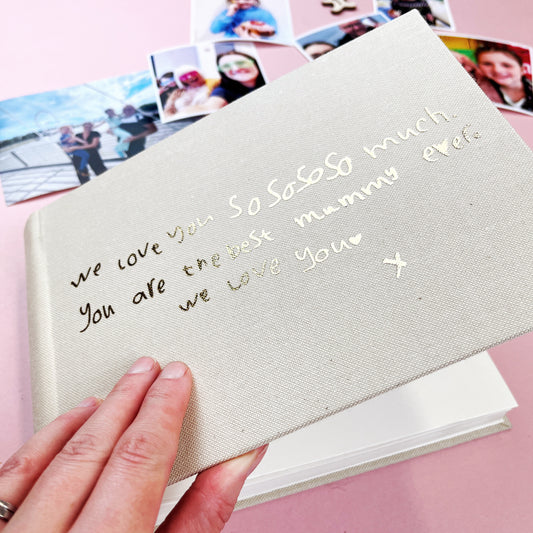 we love you So So So So much.
You are the best mummy ever.
we love you♥
x